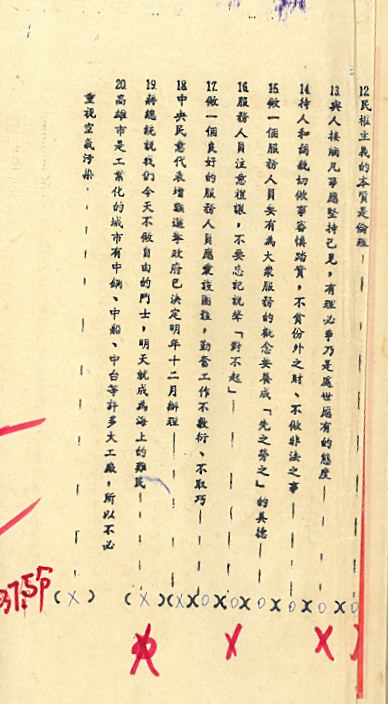 12.民權主義的本質是倫理(O
13.與人接觸凡事應堅持己見,有理必爭乃是處世應有的態度(O)
14.待人和藹親切做事審慎踏實,不貪份外之財、不做非法之事(O)
15.做一個服務人員要有為大眾服務的觀念要養成「先之勞之」的美德(O)
16.服務人員注意禮貌,不要忘記說聲「對不起」(O)
17.做一個良好的服務人員應愛護團體,勤奮工作不敷衍、不取巧(O)
18.中央民意代表增額選舉政府已決定明年十二月辦理(X)
19.蔣總統說我們今天不做自由的鬥士,明天就成為海上的難民(X)
20.高雄市是工業化的城市有中鋼、中船、中台等許多大工廠,所以不必
重視空氣污染.(X)
37.5